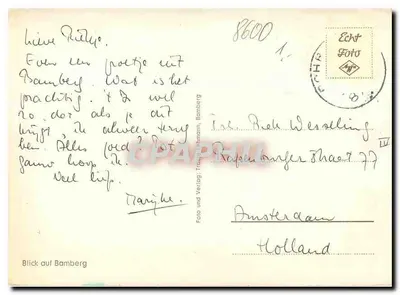 Lieve Rietje.
Even een groetje uit
Bamberg. Wat is het
prachtig. 't Is wel
zo, dat als je dit
krijgt, ik alweer terug
ben. Alles goed?
hoop ik.
Veel liefs.
Marijke
Blick auf Bamberg
Foto und Verlag: Bamberg
8600
1.-
Echt
Foto
Agfa
CPHRPHIL
Wesseling
straat 77
IV
Amsterdam
Holland